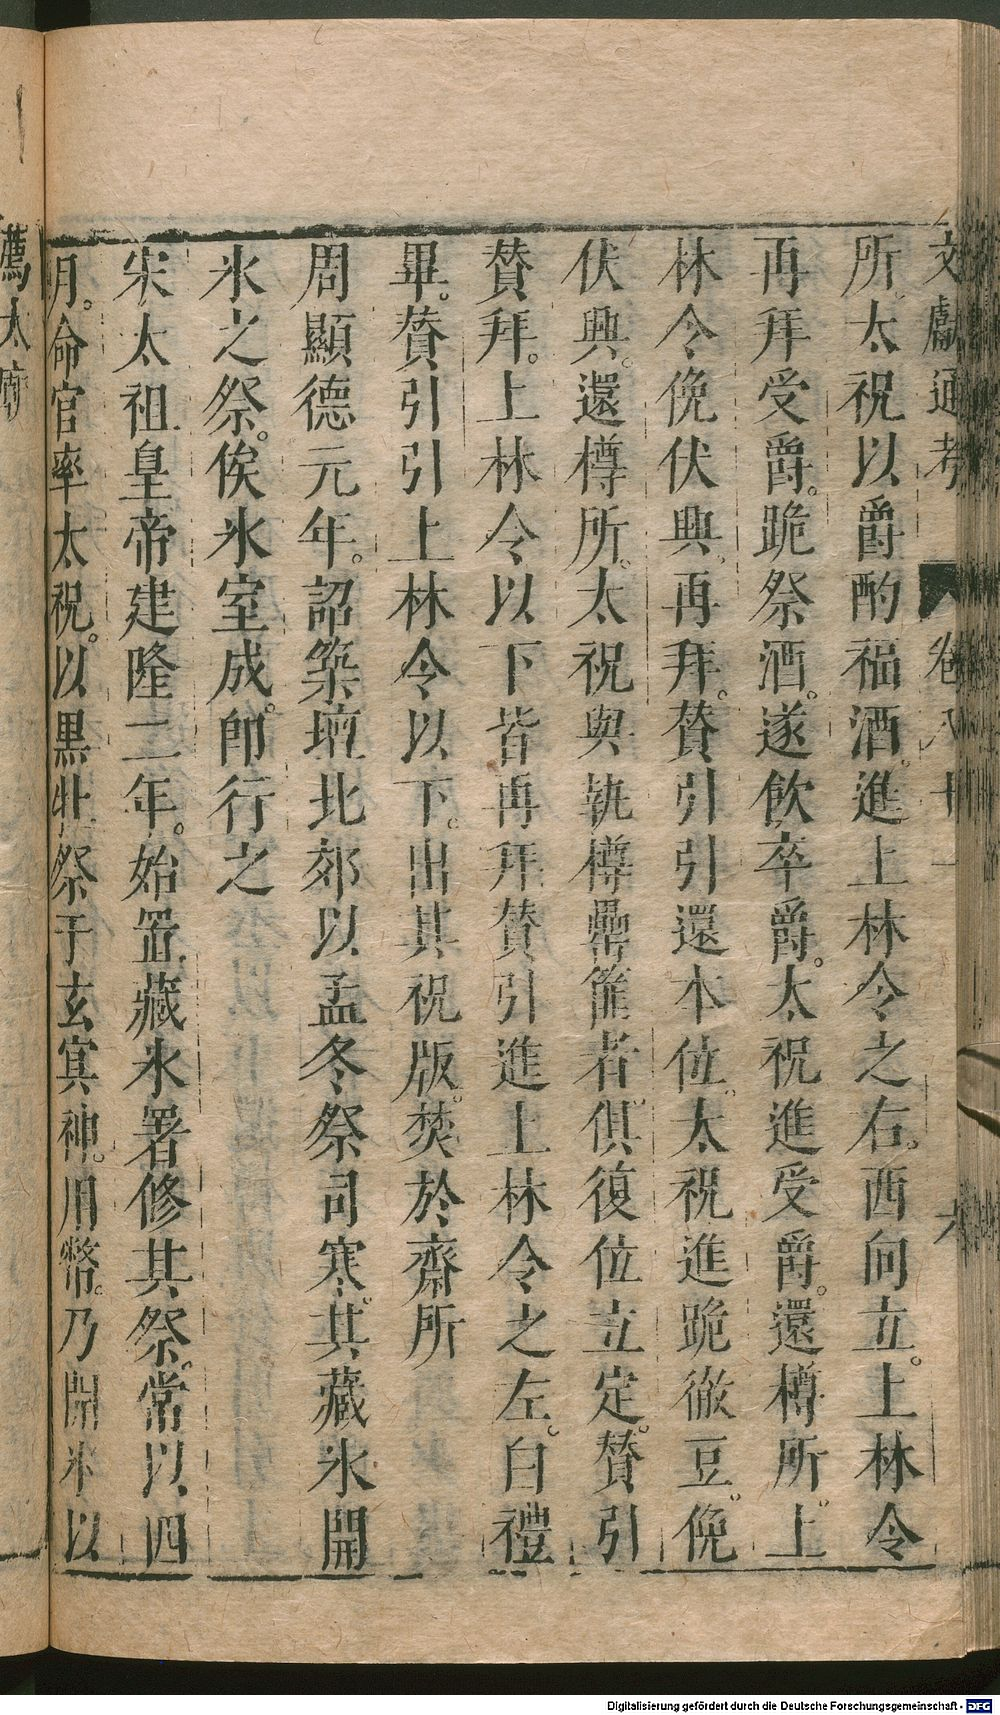 文獻通考 卷八十一 六
所太祝以爵酌福酒進上林令之右。西向立。上林令
再拜受爵。跪祭酒。遂飲卒爵。太祝進受爵。還樽所。上
林令俛伏興。再拜。賛引引還本位。太祝進跪徹豆。俛
伏興。還樽所。太祝與執樽罍篚者。俱復位立定。賛引
賛拜。上林令以下皆再拜賛引進上林令之左。白禮
畢。賛引引上林令以下。出其祝版。焚於齋所
周顯德元年。詔築壇北郊以孟冬祭司寒。其藏氷開
氷之祭。俟氷室成。卽行之
宋太祖皇帝建隆二年。始置藏氷署修其祭。常以四
月。命官率太祝。以黒牡祭于玄冥神。用幣。乃開氷以
薦太廟
Digitalisierung gefördert durch die Deutsche Forschungsgemeinschaft - DFG